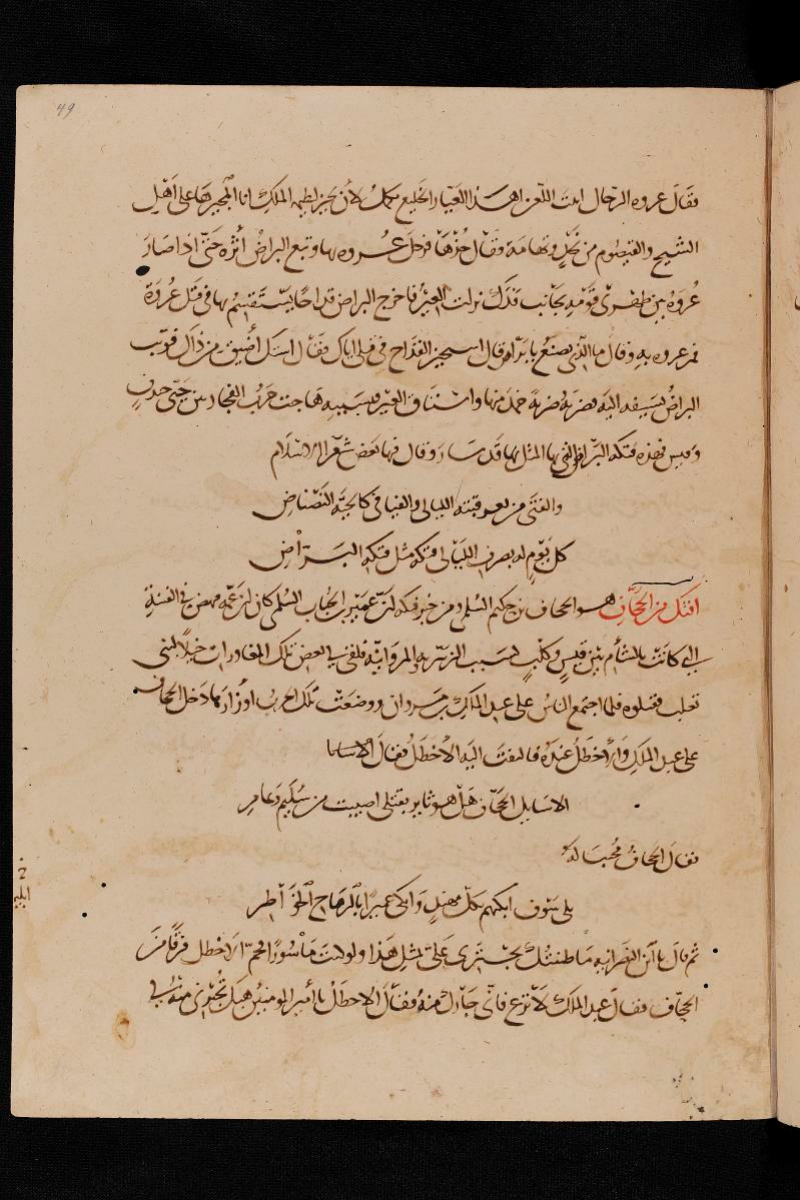 49
فقال عروه الرحال ابيت اللعن اهذا العيار الخليع يكمل لأن يجيز لطيمه الملك انا المجيرها على اهل
الشيح والقيصوم من نجد وتهامة وقال خذها فرحل عروه بها وتبع البراض أثره حتى اذا صار
عروة بين ظهرى قومه بجانب فدك نزلت العير فاخرج البراض قداحا يستقسم بها في قتل عروة
فمر عروه به وقال ما الذي تصنع يا براض قال استخير القداح في قتلى اياك فقال استك أضيق من ذاك فوثب
البراض بسيفه اليه فضربه ضربة خمد منها واستاق العير فبسببه هاجت حرب الفجار بين حيى خندف
وقيس فهذه فتكه البراض التي بها المثل بها قد سار وقال فيها بعض شعرا الاسلام
والفتى من تعرقته الليالى والفيافى كالحية النضناض
كل يوم له بصرف الليالى فتكة مثل فتكه البراض
افتك من الجحاف هو الجحاف بن حكيم السلمى ومن خبر فتكه ان عمير بن الحباب السلمى كان ابن عمه فهض في الفتنة
التي كانت بالشأم بين قيس وكلب بسبب الزبيريه والمروانيه فلقى في بعض تلك المغاورات خيلا لبنى
تغلب فقتلوه فلما اجتمع الناس على عبد الملك بن مروان ووضعت تلك الحرب اوزارها دخل الجحاف
على عبد الملك والاخطل عنده فالتفت اليه الاخطل فقال
الا سايل الجحاف هل هو ثاير بقتلى اصيبت من سليم وعامر
فقال الجحاف مجيبا له
بلى سوف ابكيهم بكل مهند وابكى عميرا بالرماح الخواطر
ثم قال يا ابن النصرانيه ما ظننتك تجترى على بمثل هذا ولو كنت مأسورا فحم الاخطل فرقا من
الجحاف فقال عبد الملك لا ترع فانى جارك منه فقال الاخطل يا أمير المومنين هبك تجيرنى منه في